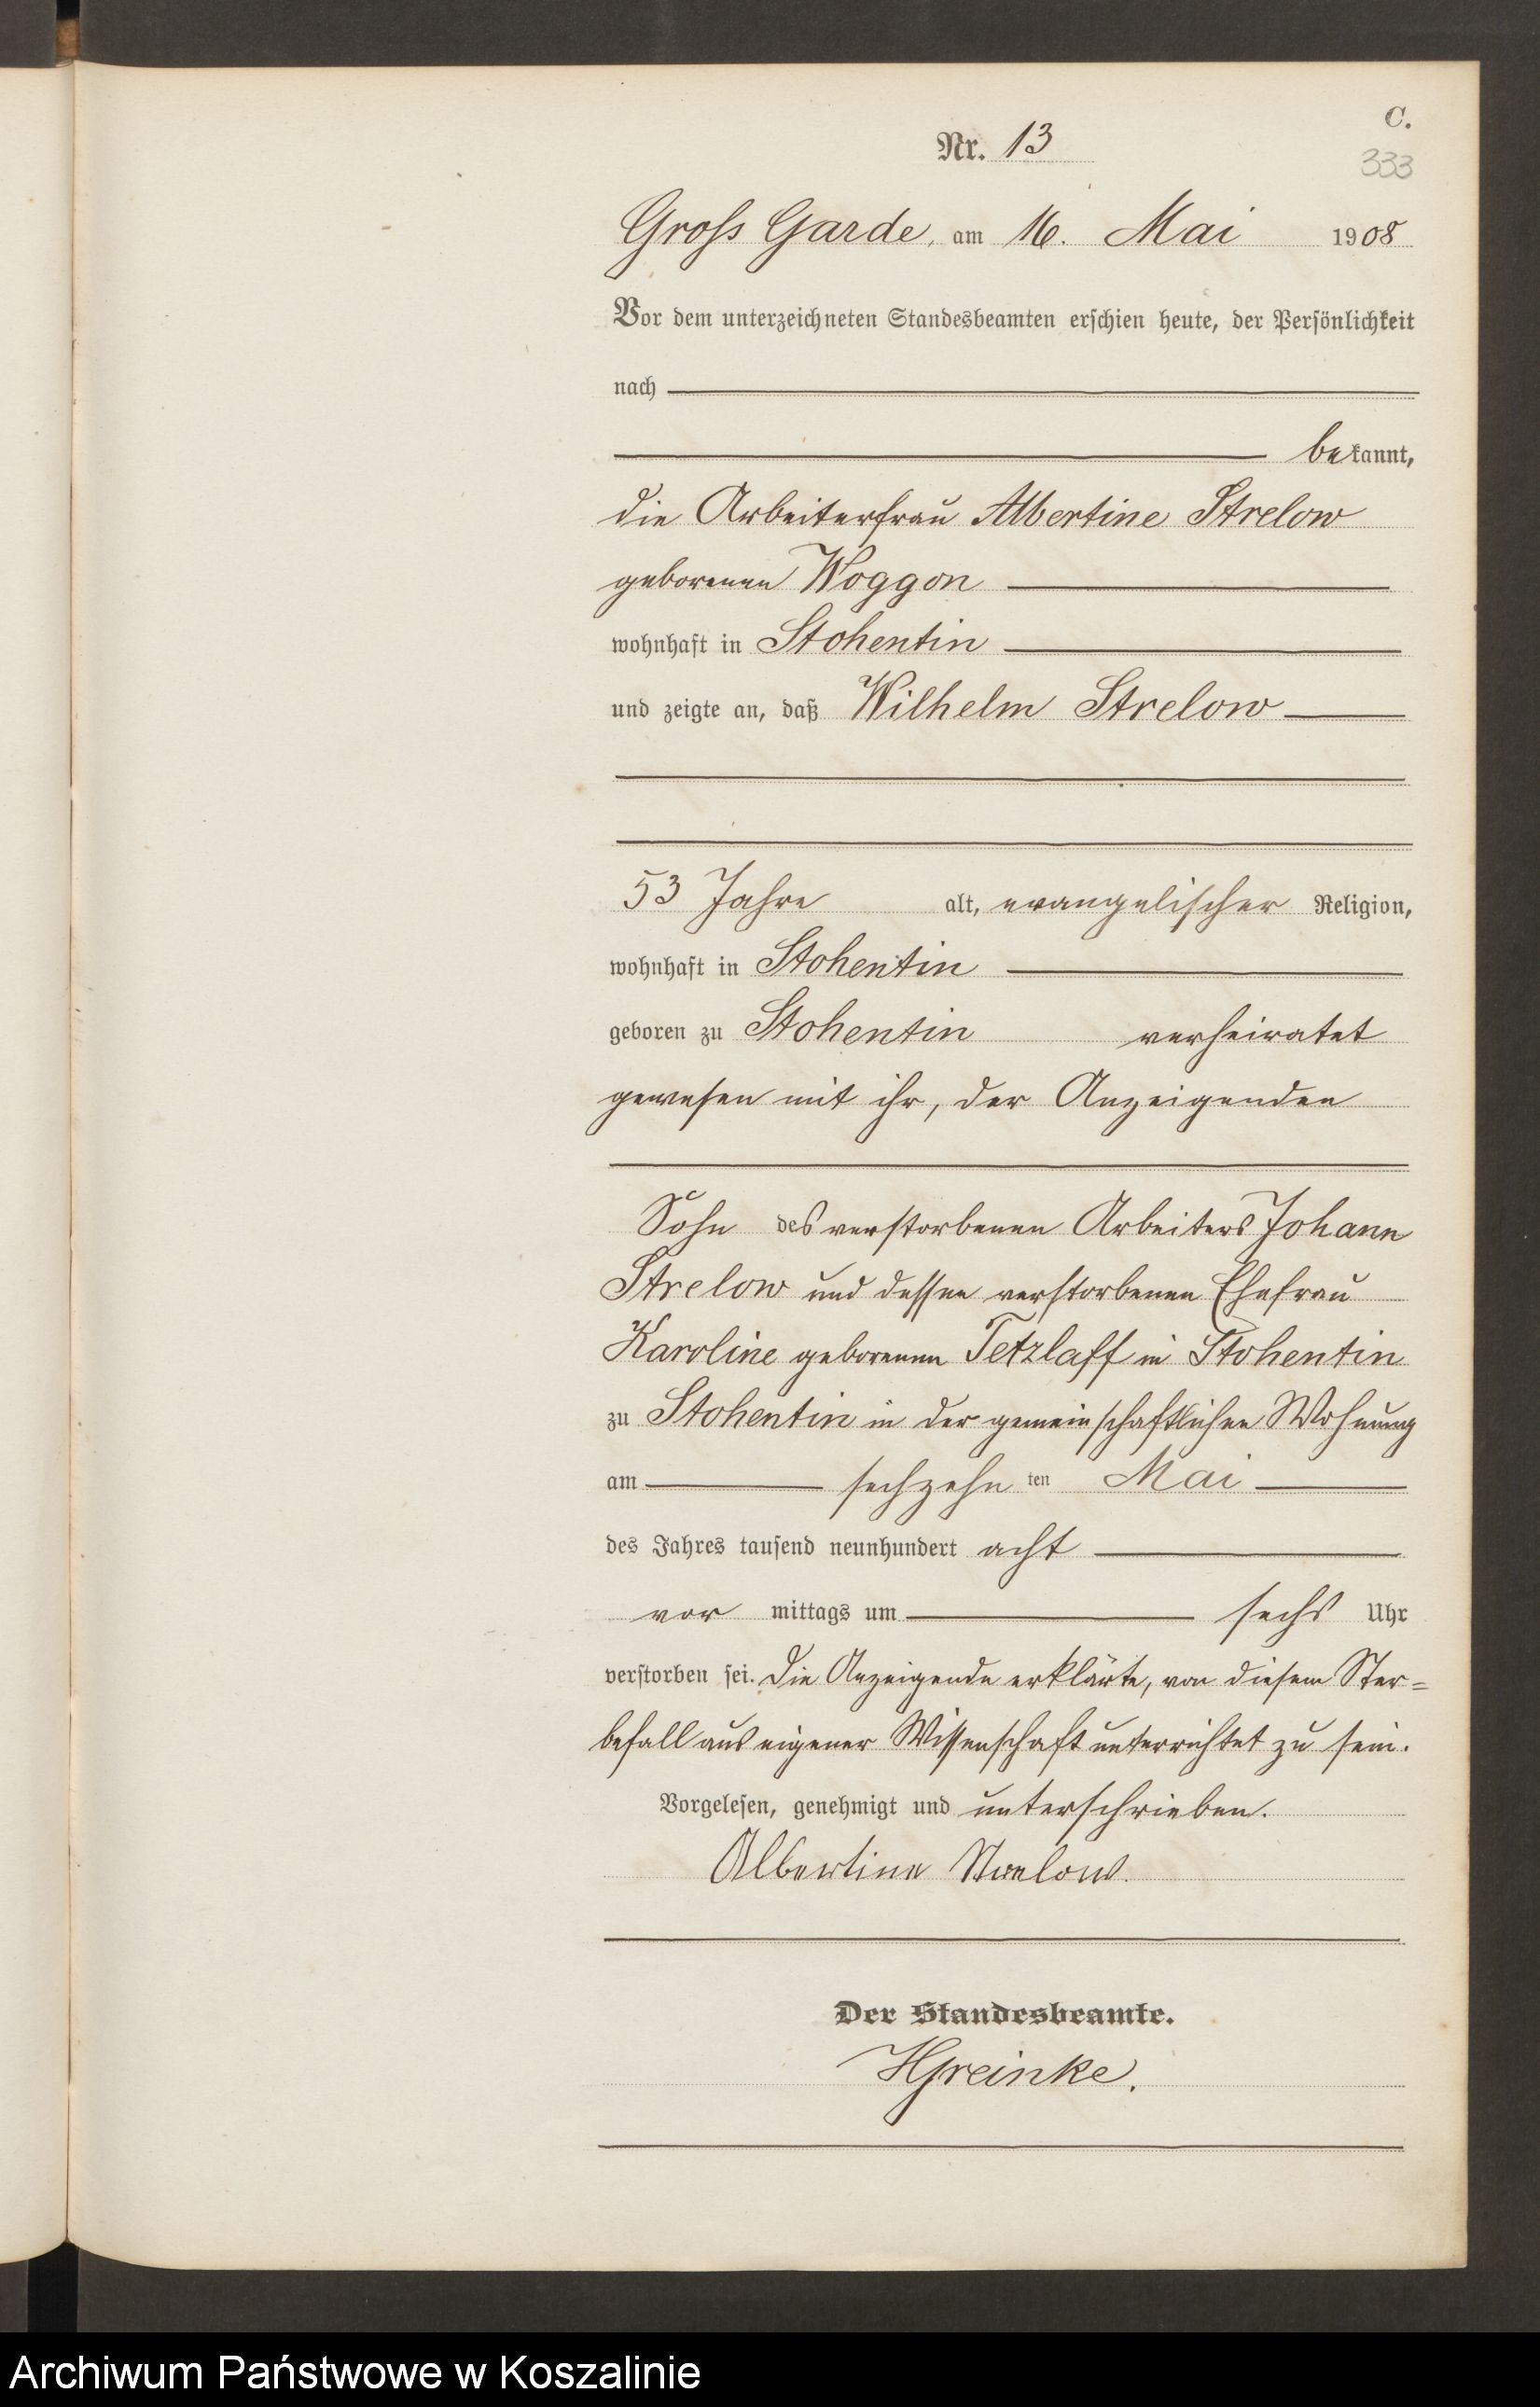 C.
Nr. 13
333
Gross Garde, am 16. Mai 1908
Vor dem unterzeichneten Standesbeamten erschien heute, der Persönlichkeit
nach
bekannt,
die Arbeiterfrau Albertine Strelow
geborenen Woggon
wohnhaft in Stohentin
und zeigte an, daß Wilhelm Strelow
53 Jahre alt, evangelischer Religion,
wohnhaft in Stohentin
geboren zu Stohentin verheiratet
gewesen mit ihr, der Anzeigenden
Sohn des verstorbenen Arbeiters Johann
Strelow und dessen verstorbenen Ehefrau
Karoline geborenen Tetzlaff in Stohentin
zu Stohentin in der gemeinschaftlichen Wohnung
am sechzehn ten Mai
des Jahres tausend neunhundert acht
vor mittags um sechs Uhr
verstorben sei. Die Anzeigende erklärte, von diesem Ster=
befall aus eigener Wissenschaft unterrichtet zu sein.
Vorgelesen, genehmigt und unterschrieben.
Albertine Strelow.
Der Standesbeamte.
HGreinke.
Archiwum Państwowe w Koszalinie